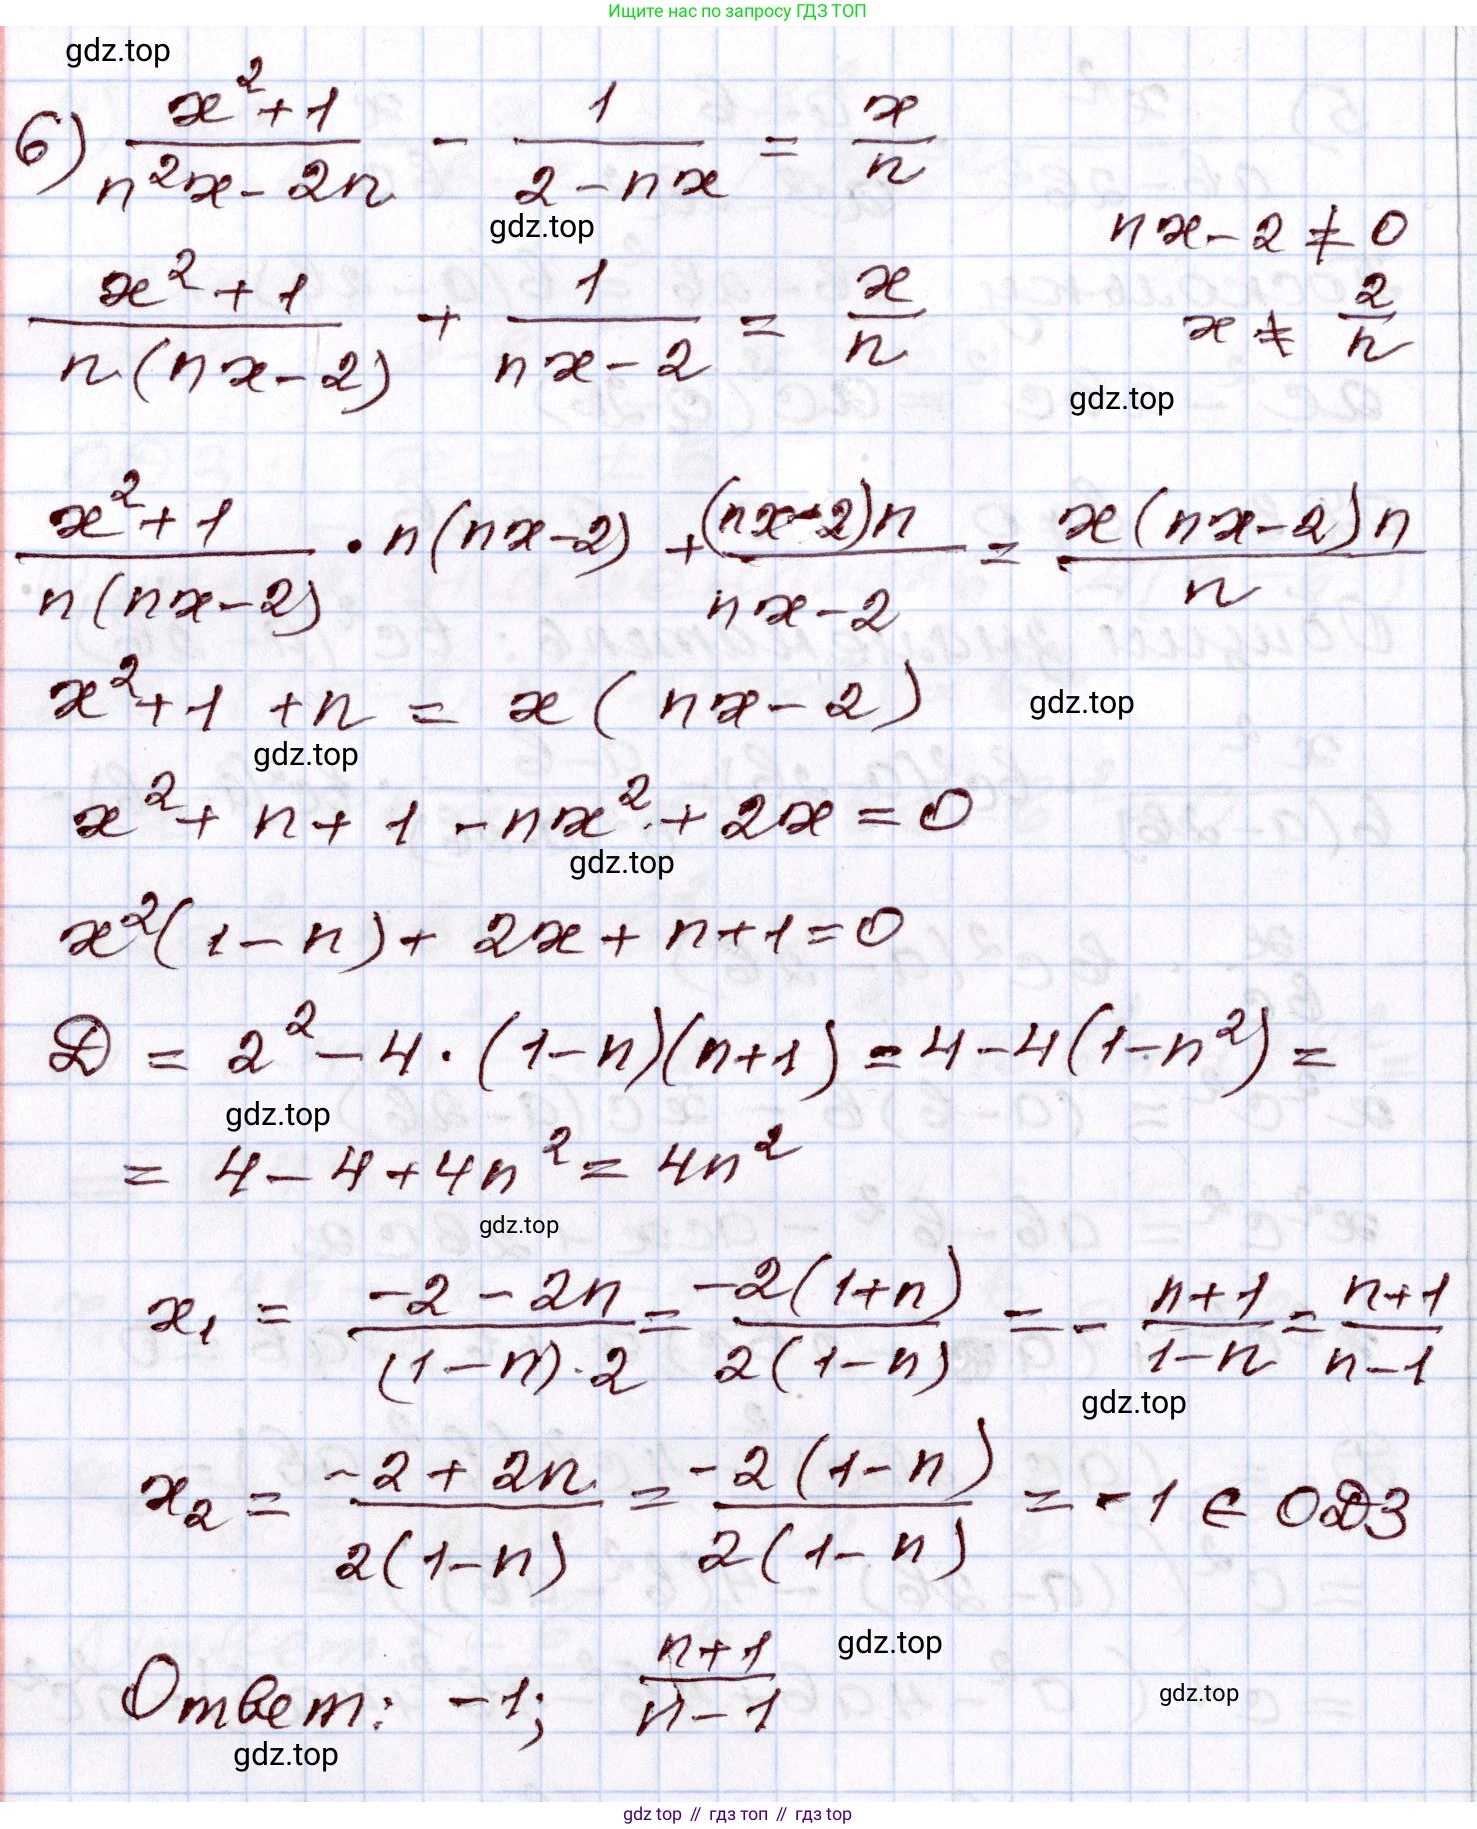 Ищите нас по запросу ГДЗ ТОП
gdz.top
6) (x² + 1)/(n²x - 2n) - 1/(2 - nx) = x/n
gdz.top
nx - 2 ≠ 0
(x² + 1)/(n(nx - 2)) + 1/(nx - 2) = x/n
x ≠ 2/n
gdz.top
(x² + 1)/(n(nx - 2)) · n(nx - 2) + ((nx - 2)n)/(nx - 2) = (x(nx - 2)n)/n
x² + 1 + n = x(nx - 2)
gdz.top
gdz.top
x² + n + 1 - nx² + 2x = 0
gdz.top
x²(1 - n) + 2x + n + 1 = 0
D = 2² - 4 · (1 - n)(n + 1) = 4 - 4(1 - n²) =
gdz.top
= 4 - 4 + 4n² = 4n²
gdz.top
x₁ = (-2 - 2n)/((1 - n) · 2) = (-2(1 + n))/(2(1 - n)) = - (n + 1)/(1 - n) = (n + 1)/(n - 1)
gdz.top
x₂ = (-2 + 2n)/(2(1 - n)) = (-2(1 - n))/(2(1 - n)) = -1 ∈ ОДЗ
Ответ: -1; (n + 1)/(n - 1)
gdz.top
gdz.top
gdz.top
gdz top // гдз топ // гдз top